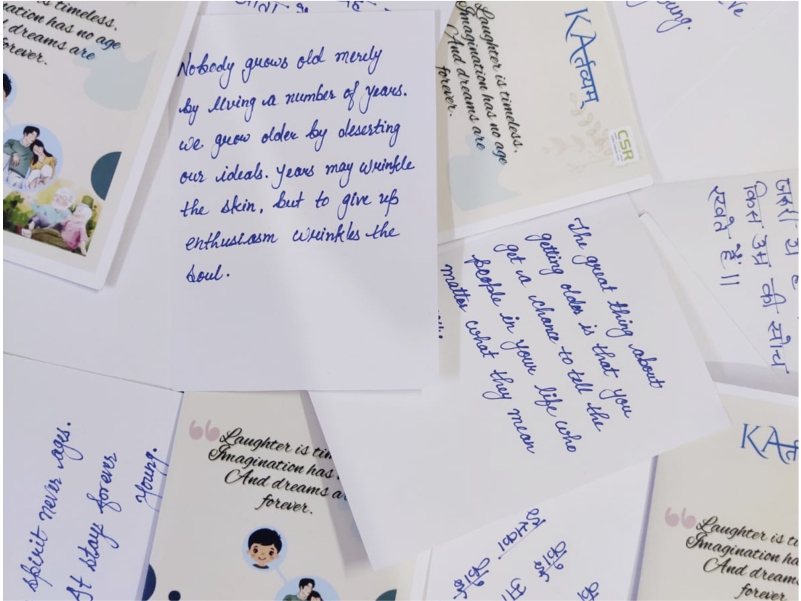 timeless.
ination has no age
d dreams are
forever.
Nobody grows old merely
by living a number of years.
we grow older by deserting
our ideals. Years may wrinkle
the skin, but to give up
enthusiasm wrinkles the
soul.
Laughter is timeless.
Imagination has no age
And dreams are
forever.
KAर्तव्यम्
CSR
young.
किस उम्र की सोच
रखते हैं।।
The great thing about
getting older is that you
get a chance to tell the
people in your life who
matter what they mean
spirit never ages.
It stays forever
young.
Laughter is tim
Imagination has
And dreams a
forever.
KAर्त
Laughter is ti
Imagination ha
And dreams are
forever.